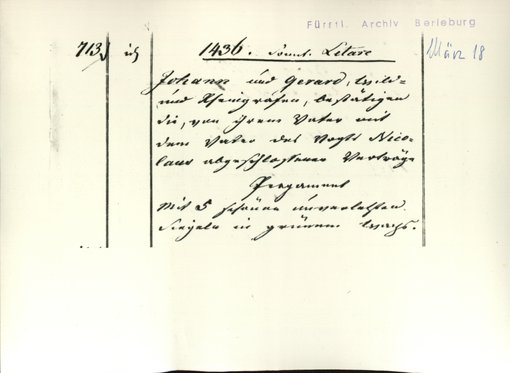 Fürstl. Archiv Berleburg
713, 1436. Sonnt. Letare März 18
Johann und Gerard, Wild-
und Rheingrafen, bestätigen
die, von ihrem Vater mit
dem Vater des Vogts Nico-
laus abgeschlossenen Verträge
Pergament
Mit 5 schönen unverletzten
Siegeln in grünem Wachs.